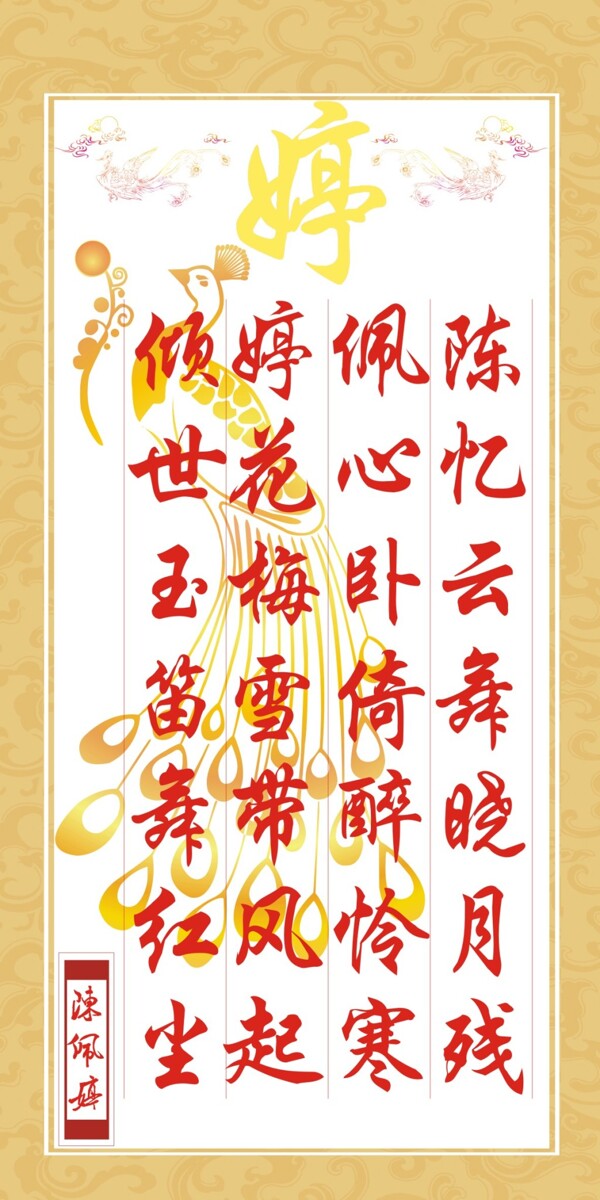 婷
陈忆云舞晓月残
佩心卧倚醉怜寒
婷花梅雪带风起
倾世玉笛舞红尘
陳佩婷